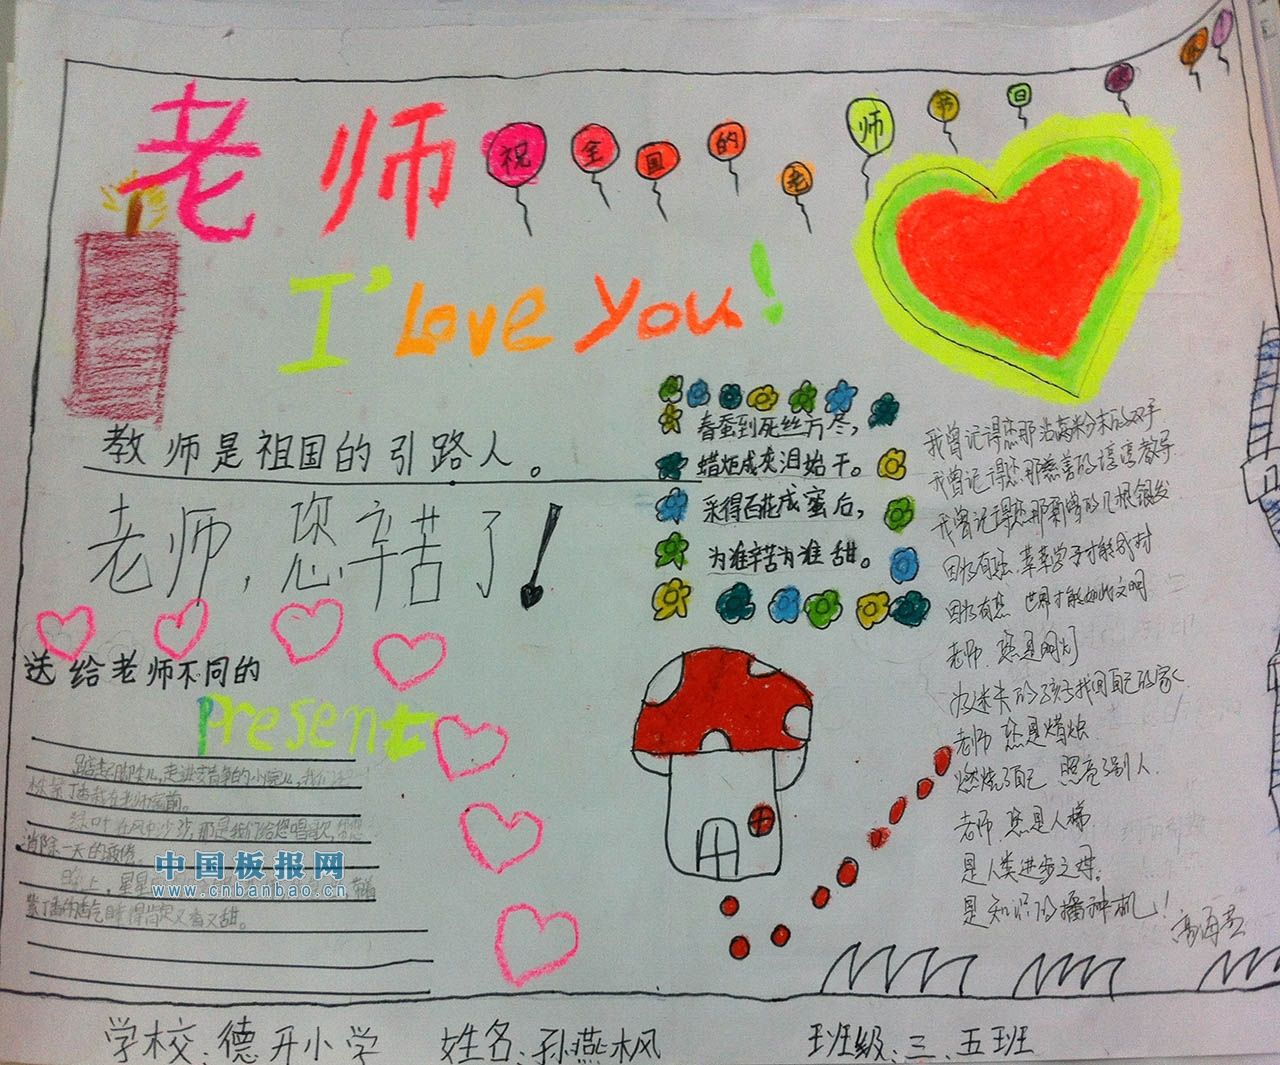 老师
祝全国的老师节日
I' Love You!
教师是祖国的引路人。
老师,您辛苦了!
春蚕到死丝方尽,
蜡炬成灰泪始干。
采得百花成蜜后,
为谁辛苦为谁甜。
送给老师不同的
present
踮起脚尖儿,走进安静的小院儿,我们
紫丁香栽在老师窗前。
绿叶在风中沙沙,那是我们给您唱歌,帮您
消除一天的疲倦。
晚上,星星
紫丁香的香气
又香又甜。
我曾记得您那沾满粉末的双手
我曾记得您那慈善的谆谆教导
我曾记得您那新增的几根银发
因为有您 莘莘学子才能成材
因为有您 世界才能如此文明
老师 您是明灯
为迷失的孩子找回自己的家
老师 您是烛
燃烧了自己 照亮了别人
老师 您是人梯
是人类进步之
是知识的播种机!
中国板报网
www.cnbanbao.cn
学校:德开小学 姓名:孙燕枫 班级:三、五班